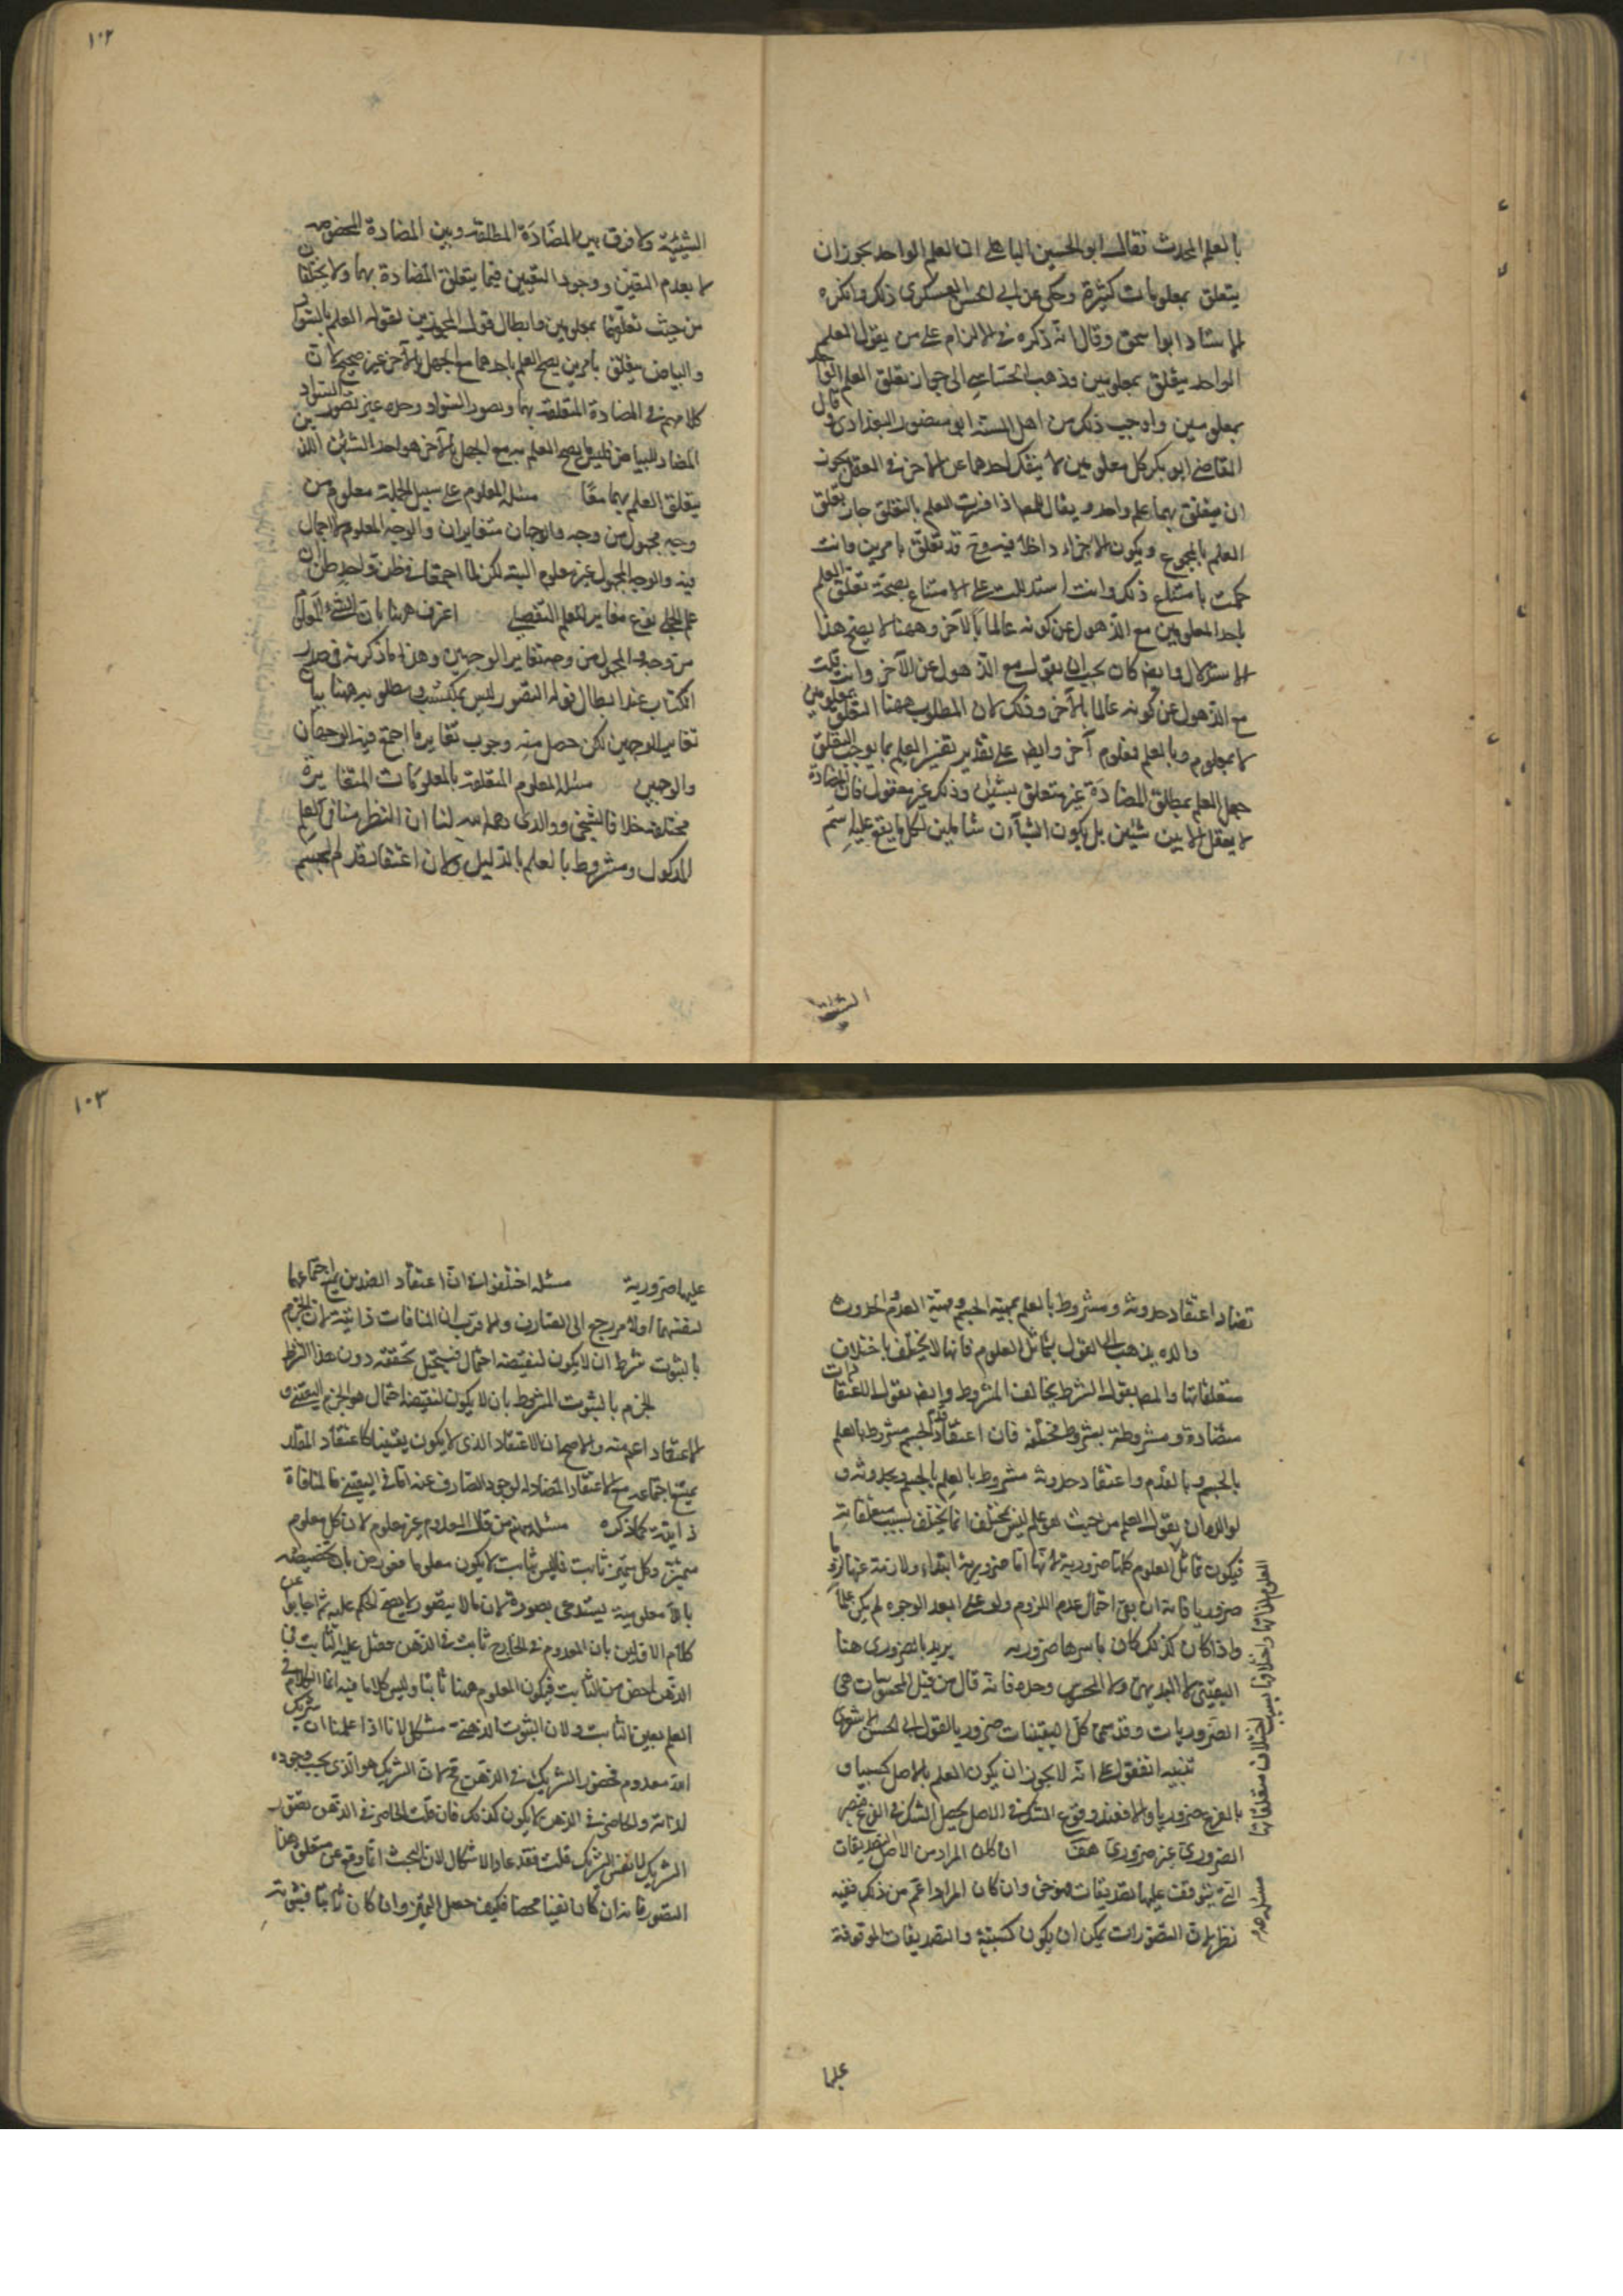 بالعلم المحدث فقال ابو الحسين الباهلى ان العلم الواحد يجوز ان
يتعلق بمعلومات كثيرة وحكى عن ابى الحسن الاشعرى ذلك وانكره
الاستاد ابو اسحق وقال انه ذكره فى الالزام على من يقول العلم
الواحد يتعلق بمعلومين وذهب الى جواز تعلق العلم الواحد
بمعلومين واوجب ذلك من اهل السنة ابو منصور البغدادى وقال
القاضى ابو بكر كل معلومين لا ينفك احدهما عن الآخر فى العقل يجوز
ان يتعلق بهما علم واحد ويقال لهم اذا فسرت العلم بالتعلق جاز تعلق
العلم بالمجموع ويكون الاجزاء داخلا فيه وح قد تعلق بامرين وانت
حكمت بامتناع ذلك وانت استدللت على الامتناع بصحة تعلق العلم
باحد المعلومين مع الذهول عن كونه عالما بالآخر وههنا لا يصح هذا
الاستدلال وايضا كان يجب ان يقول مع الذهول عن الآخر وانت قلت
مع الذهول عن كونه عالما بالآخر وذلك لان المطلوب ههنا التعلق بمعلومين
لا بمعلوم وبالعلم بمعلوم آخر وايضا على تقدير تفسير العلم بما يوجب التعلق
جعل العلم بمطلق المضادة غير متعلق بشيئين وذلك غير معقول فان المضادة
لا يعقل الا بين شيئين بل يكون الشيآن شاملين لكل ما يقع عليه اسم
الشيئية
١٠٢
الشيئية ولا فرق بين المضادة المطلقة وبين المضادة المخصوصة
لا بعدم التعين ووجود التعيين فيما يتعلق المضادة بهما ولا يختلفان
من حيث تعلقهما بمعلومين وابطال قول المجوزين بقوله العلم بالسواد
والبياض متعلق بامرين يصح العلم باحدهما مع الجهل بالآخر غير صحيح لان
كلامهم فى المضادة المتعلقة بهما وتصور السواد وحده غير تصور السواد
المضاد للبياض فليس ما يصح العلم به مع الجهل بالآخر هو احد الشيئين الذين
يتعلق العلم بهما معًا مسئلة المعلوم على سبيل الجملة معلوم من
وجه مجهول من وجه والوجهان متغايران والوجه المعلوم لا اجمال
فيه والوجه المجهول غير معلوم البتة لكن لما اجتمعا فى شئ واحد ظن ان
العلم الجملى نوع مغاير للعلم التفصيلى اعترف ههنا بان الشئ المعلوم
من وجه والمجهول من وجه متغاير الوجهين وهذا ما ذكرته فى صدر
الكتاب عند ابطال قوله التصور ليس بمكتسب ومطلوبه ههنا بيان
تغاير الوجهين لكن حصل منه وجوب تغاير ما اجتمع فيه الوجهان
والوجهين مسئلة العلوم المتعلقة بالمعلومات المتغايرة
مختلفة خلافا لشيخى ووالدى رحمه الله لنا ان النظر مناف للعلم
بالمدلول ومشروط بالعلم بالدليل ولان اعتقاد قدم الجسم
تضاد اعتقاد حدوثه ومشروط بالعلم بمهية الجسم ومهية القدم والحدوث
والده يذهب الى القول بتماثل العلوم فانها لا يختلف باختلاف
متعلقاتها والمص يقول الشرط يخالف المشروط وايضا يقول الاعتقادات
متضادة ومشروطة بشروط مختلفة فان اعتقاد قدم الجسم مشروط بالعلم
بالجسم وبالقدم واعتقاد حدوثه مشروط بالعلم بالجسم وبحدوثه و
لوالده ان يقول العلم من حيث هو علم ليس بمختلف انما يختلف بسبب متعلقاته
فيكون تماثل العلوم كلها ضرورية لانها اما ضرورية ابتداء ولازمة عنها لزوما
ضروريا فانه ان بقى احتمال عدم اللزوم ولو على ابعد الوجوه لم يكن علما
واذا كان كذلك كان باسرها ضرورية يريد بالضرورى هنا
اليقينى لا البديهى ولا المحسوس وحده فانه قال من قبل المحسوسات هى
الضروريات وقد سمى كل اليقينيات ضروريا لقول ابى الحسن الاشعرى
تنبيه اتفقوا على انه لا يجوز ان يكون العلم بالاصل كسبيا و
بالفرع ضروريا والا فعند وقوع الشك فى الاصل يحصل الشك فى الفرع فيصير
الضرورى غير ضرورى هف ان كان المراد من الاصل التصديقات
التى يتوقف عليها تصديقات فهو حق وان كان المراد اعم من ذلك ففيه
نظر لان التصورات يمكن ان يكون كسبية والتصديقات الموقوفة
العلوم وتماثلها واختلافها بسبب اختلاف متعلقاتها
مسئلة
عليها
١٠٣
عليها ضرورية مسئلة اختلفوا فى ان اعتقاد الضدين يمتنع اجتماعهما
لنفسهما او لامر يرجع الى الصارف والاقرب ان المنافات ذاتية لان الجزم
بالثبوت شرط ان لا يكون لنقيضه احتمال فيستحيل تحققه دون هذا الشرط
الجزم بالثبوت المشروط بان لا يكون لنقيضه احتمال هو الجزم اليقينى و
الاعتقاد اعم منه والاصح ان الاعتقاد الذى لا يكون يقينيا كاعتقاد المقلد
يمتنع اجتماعه مع الاعتقاد المضاد له لوجود الصارف عنه اما فى اليقينى فالمنافاة
ذاتية كما ذكره مسئلة منهم من قال المعدوم غير معلوم لان كل معلوم
متميز وكل متميز ثابت فما ليس بثابت لا يكون معلوما فعورض بان تخصيصه
باللا معلومية يستدعى تصوره لان ما لا يتصور لا يصح الحكم عليه ثم اجابوا عن
كلام الاولين بان المعدوم فى الخارج ثابت فى الذهن فقيل عليه الثابت فى
الذهن اخص من الثابت فيكون المعلوم ههنا ثابتا وليس كلامنا فيه انما الكلام فى
العلم بغير الثابت ولان الثبوت الذهنى مشكل لانا اذا علمنا ان شريك
الله معدوم فحضور الشريك فى الذهن مح لان الشريك هو الذى يجب وجوده
لذاته والحاضر فى الذهن لا يكون كذلك فان قلت الحاضر فى الذهن تصور
الشريك لا نفس الشريك قلت فقد عاد الاشكال لان البحث انما وقع عن متعلق هذا
التصور فانه ان كان نفيا محضا فكيف حصل التميز وان كان ثابتا فثبوته